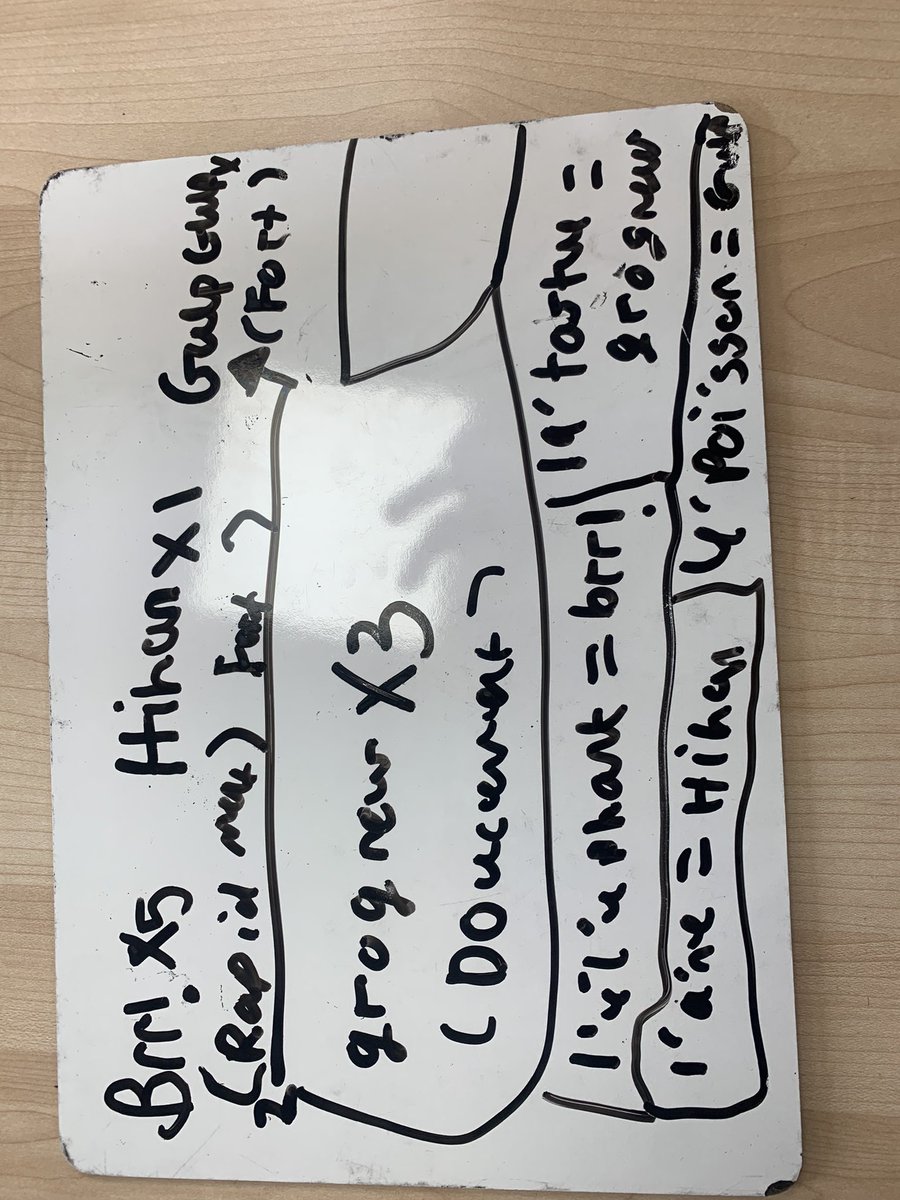 Brr! X5 Hihan X1 Gulp Gulp x
(Rapid ment) Fort ) (Fort)
2
grognew X3
(Doucement)
l'éléphant = brr! la tortue =
grognew
l'âne = Hihan le poisson = Gulp